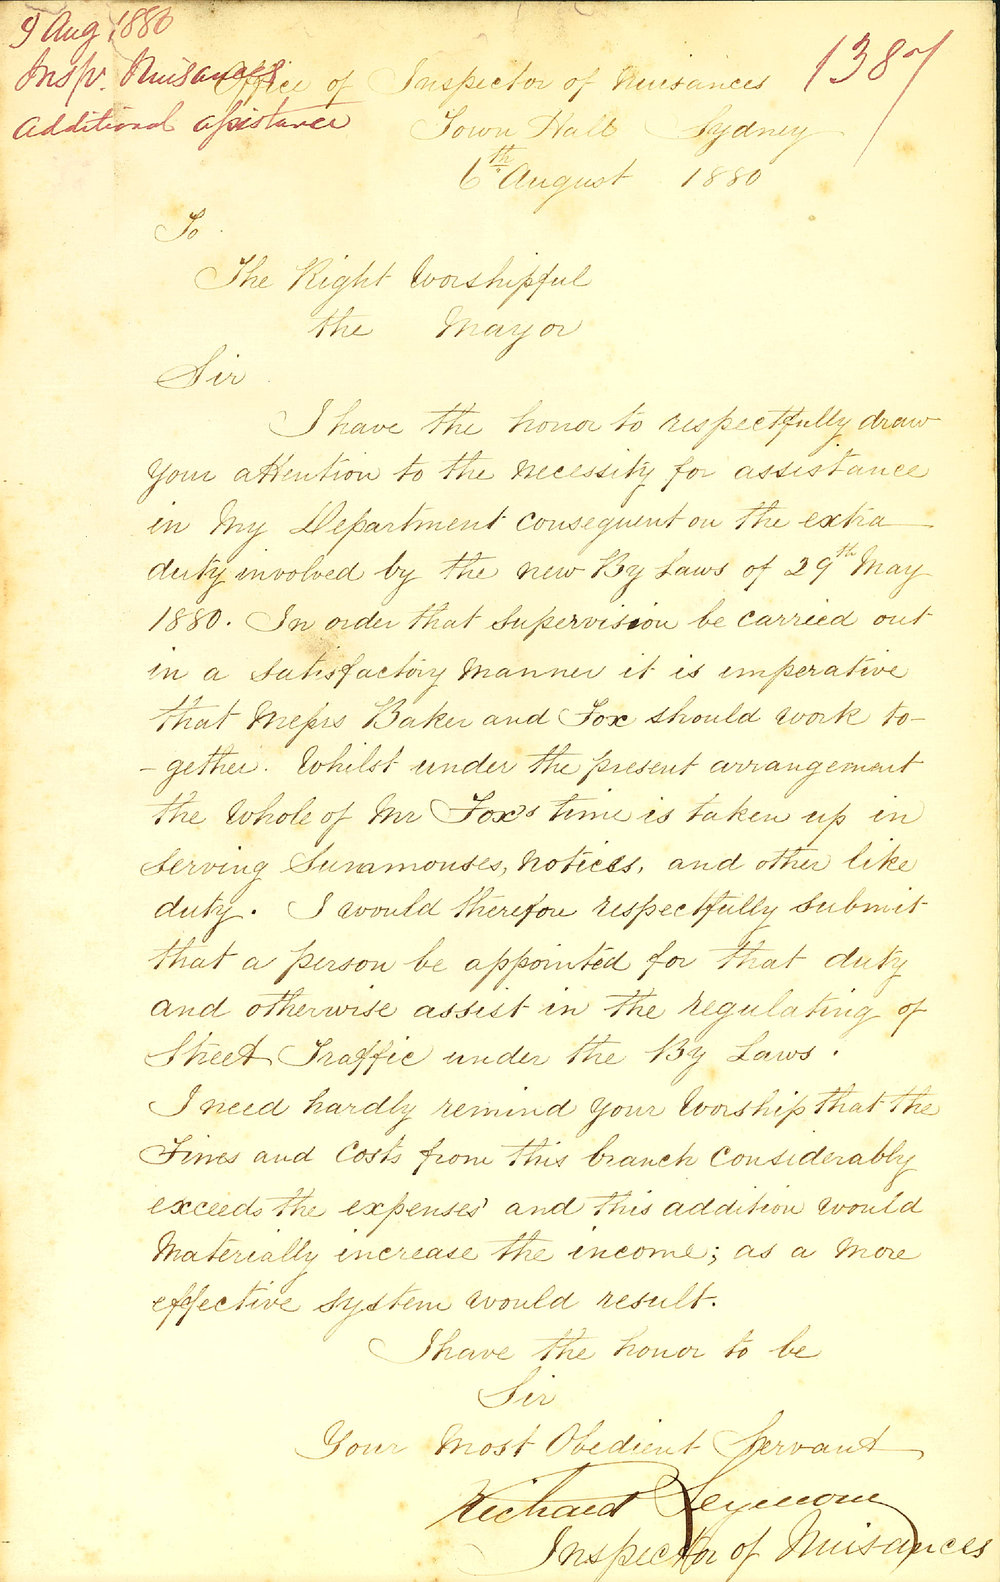 9 Aug 1880
Insp. Nuisances
Additional assistance
1387
Office of Inspector of Nuisances
Town Hall Sydney
6th August 1880
To
The Right Worshipful
the Mayor
Sir
I have the honor to respectfully draw
your attention to the necessity for assistance
in my Department consequent on the extra
duty involved by the new By Laws of 29th May
1880. In order that supervision be carried out
in a satisfactory manner it is imperative
that Messrs Baker and Fox should work to-
-gether. Whilst under the present arrangement
the whole of Mr Fox's time is taken up in
serving Summonses, notices, and other like
duty. I would therefore respectfully submit
that a person be appointed for that duty
and otherwise assist in the regulating of
Street Traffic under the By Laws.
I need hardly remind your Worship that the
Fines and Costs from this branch considerably
exceeds the expenses and this addition would
materially increase the income; as a more
effective system would result.
I have the honor to be
Sir
Your Most Obedient Servant
Richard Seymour
Inspector of Nuisances